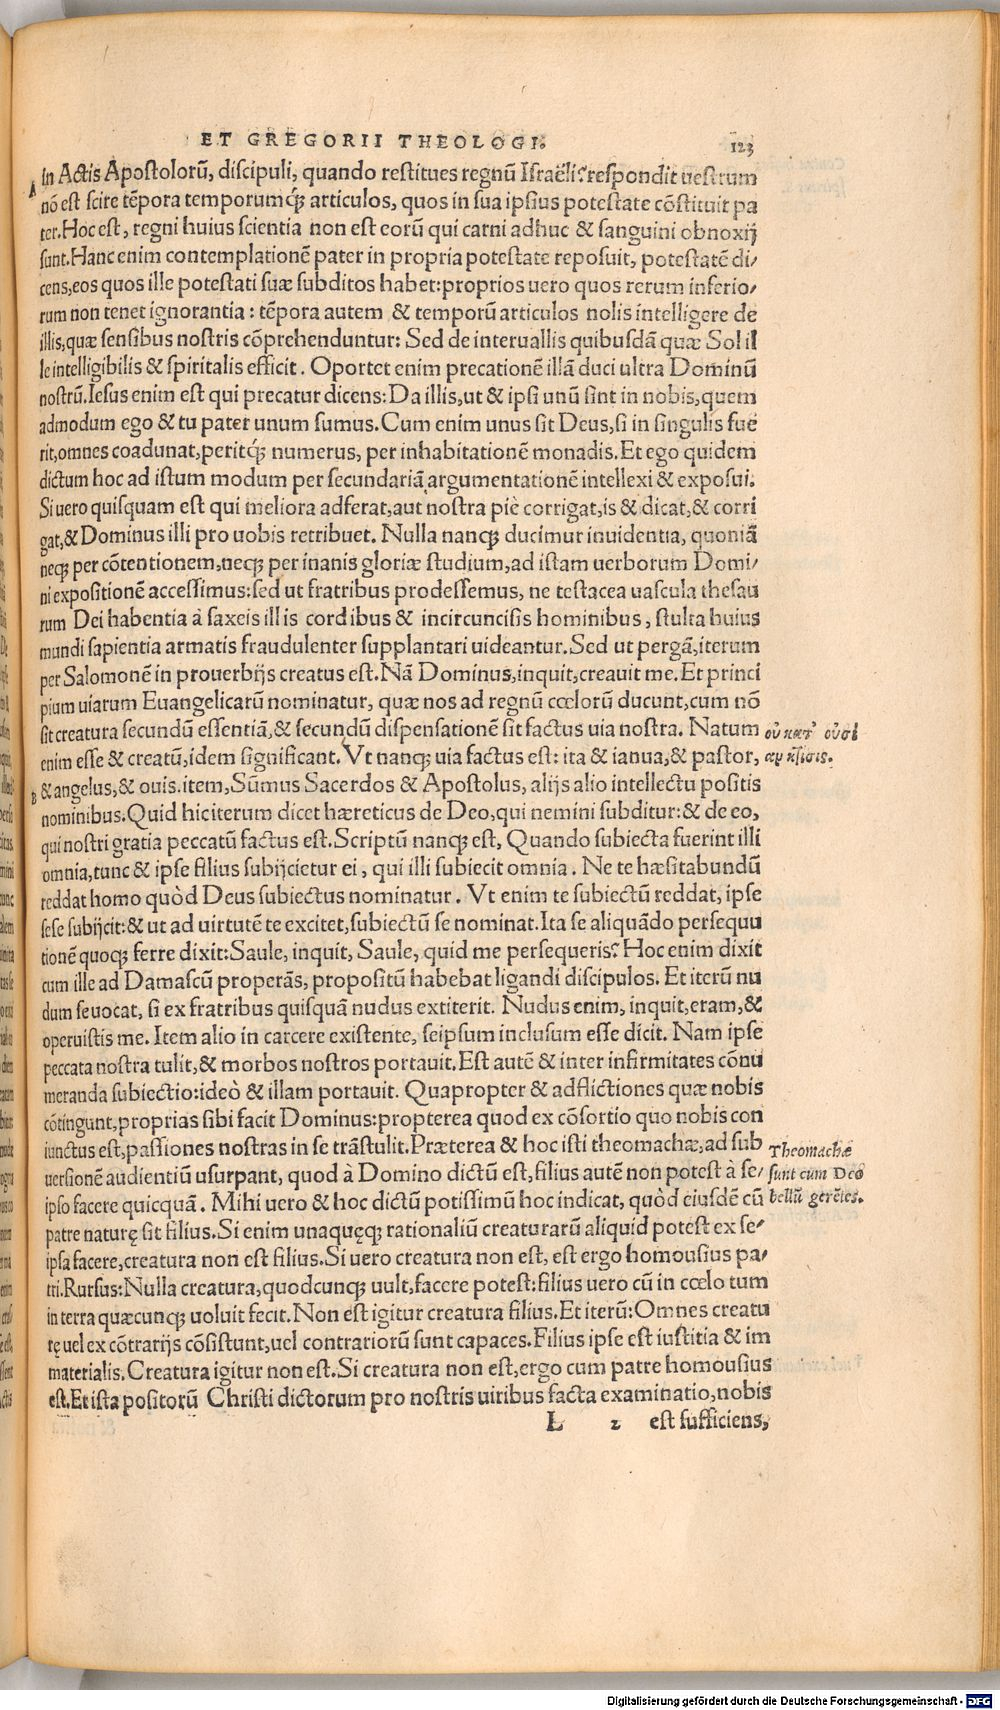 ET GREGORII THEOLOGI. 123
A In Actis Apostolorū, discipuli, quando restitues regnū Israëli? respondit uestrum
nō est scire tēpora temporumq́; articulos, quos in sua ipsius potestate cōstituit pa
ter. Hoc est, regni huius scientia non est eorū qui carni adhuc & sanguini obnoxij
sunt. Hanc enim contemplationē pater in propria potestate reposuit, potestatē di/
cens, eos quos ille potestati suæ subditos habet: proprios uero quos rerum inferio/
rum non tenet ignorantia: tēpora autem & temporū articulos nolis intelligere de
illis, quæ sensibus nostris cōprehenduntur: Sed de interuallis quibusdā quæ Sol il
le intelligibilis & spiritalis efficit. Oportet enim precationē illā duci ultra Dominū
nostrū. Iesus enim est qui precatur dicens: Da illis, ut & ipsi unū sint in nobis, quem
admodum ego & tu pater unum sumus. Cum enim unus sit Deus, si in singulis fue
rit, omnes coadunat, peritq́; numerus, per inhabitationē monadis. Et ego quidem
dictum hoc ad istum modum per secundariā argumentationē intellexi & exposui.
Si uero quisquam est qui meliora adferat, aut nostra piè corrigat, is & dicat, & corri
gat, & Dominus illi pro uobis retribuet. Nulla nanq; ducimur inuidentia, quoniā
neq; per cōtentionem, neq; per inanis gloriæ studium, ad istam uerborum Domi/
ni expositionē accessimus: sed ut fratribus prodessemus, ne testacea uascula thesau
rum Dei habentia à saxeis illis cordibus & incircuncisis hominibus, stulta huius
mundi sapientia armatis fraudulenter supplantari uideantur. Sed ut pergā, iterum
per Salomonē in prouerbijs creatus est. Nā Dominus, inquit, creauit me. Et princi
pium uiarum Euangelicarū nominatur, quæ nos ad regnū cœlorū ducunt, cum nō
sit creatura secundū essentiā, & secundū dispensationē sit factus uia nostra. Natum
enim esse & creatū, idem significant. Vt nanq; uia factus est: ita & ianua, & pastor,
B & angelus, & ouis. item, Sūmus Sacerdos & Apostolus, alijs alio intellectu positis
nominibus. Quid hic iterum dicet hæreticus de Deo, qui nemini subditur: & de eo,
qui nostri gratia peccatū factus est. Scriptū nanq; est, Quando subiecta fuerint illi
omnia, tunc & ipse filius subijcietur ei, qui illi subiecit omnia. Ne te hæsitabundū
reddat homo quòd Deus subiectus nominatur. Vt enim te subiectū reddat, ipse
sese subijcit: & ut ad uirtutē te excitet, subiectū se nominat. Ita se aliquādo persequu
tionē quoq; ferre dixit: Saule, inquit, Saule, quid me persequeris? Hoc enim dixit
cum ille ad Damascū properās, propositū habebat ligandi discipulos. Et iterū nu
dum se uocat, si ex fratribus quisquā nudus extiterit. Nudus enim, inquit, eram, &
operuistis me. Item alio in carcere existente, seipsum inclusum esse dicit. Nam ipse
peccata nostra tulit, & morbos nostros portauit. Est autē & inter infirmitates cōnu
meranda subiectio: ideò & illam portauit. Quapropter & adflictiones quæ nobis
cōtingunt, proprias sibi facit Dominus: propterea quod ex cōsortio quo nobis con
iunctus est, passiones nostras in se trāstulit. Præterea & hoc isti theomachæ, ad sub
uersionē audientiū usurpant, quod à Domino dictū est, filius autē non potest à se/
ipso facere quicquā. Mihi uero & hoc dictū potissimū hoc indicat, quòd eiusdē cū
patre naturę sit filius. Si enim unaquęq; rationaliū creaturarū aliquid potest ex se/
ipsa facere, creatura non est filius. Si uero creatura non est, est ergo homousius pa/
tri. Rursus: Nulla creatura, quodcunq; uult, facere potest: filius uero cū in cœlo tum
in terra quæcunq; uoluit fecit. Non est igitur creatura filius. Et iterū: Omnes creatu
rę uel ex cōtrarijs cōsistunt, uel contrariorū sunt capaces. Filius ipse est iustitia & im
materialis. Creatura igitur non est. Si creatura non est, ergo cum patre homousius
est. Et ista positorū Christi dictorum pro nostris uiribus facta examinatio, nobis
L 2 est sufficiens,
Theomachæ
sunt cum Deo
bellū gerētes.
Digitalisierung gefördert durch die Deutsche Forschungsgemeinschaft - DFG